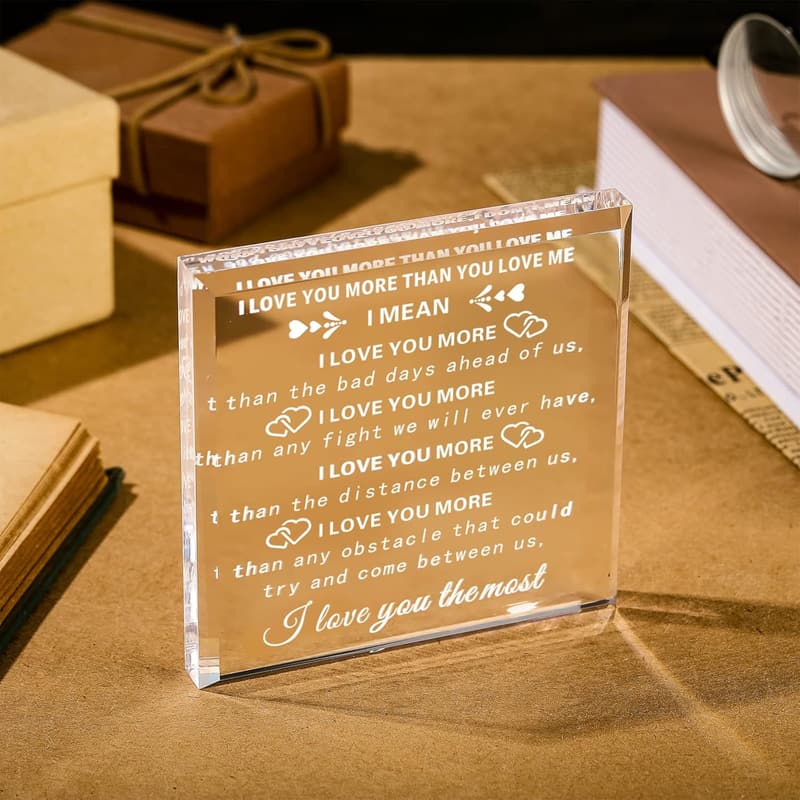 I LOVE YOU MORE THAN YOU LOVE ME
I MEAN
I LOVE YOU MORE
than the bad days ahead of us,
I LOVE YOU MORE
than any fight we will ever have,
I LOVE YOU MORE
than the distance between us,
I LOVE YOU MORE
than any obstacle that could
try and come between us,
I love you the most